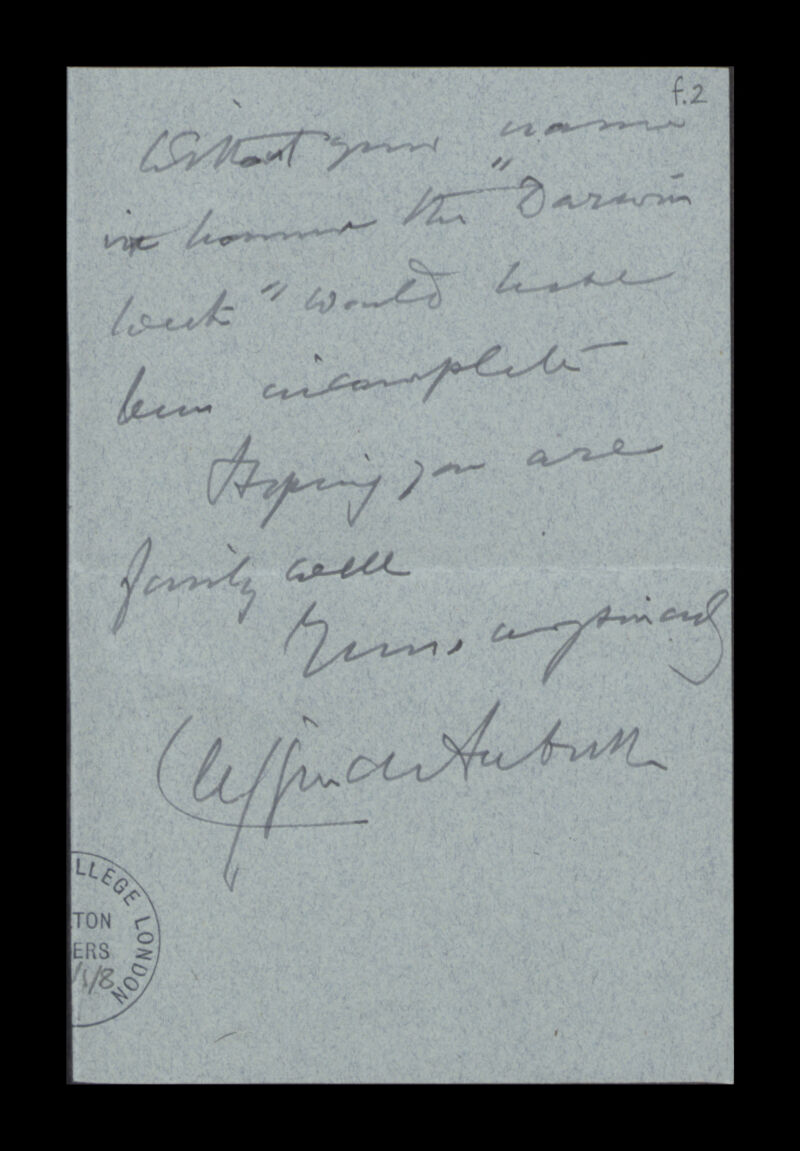 f.2
Without your name
in honour the "Darwin
week" would have
been incomplete
Hoping you are
family well
Yours
Clifford Allbutt
LLEGE LONDON
TON
ERS
/5/8